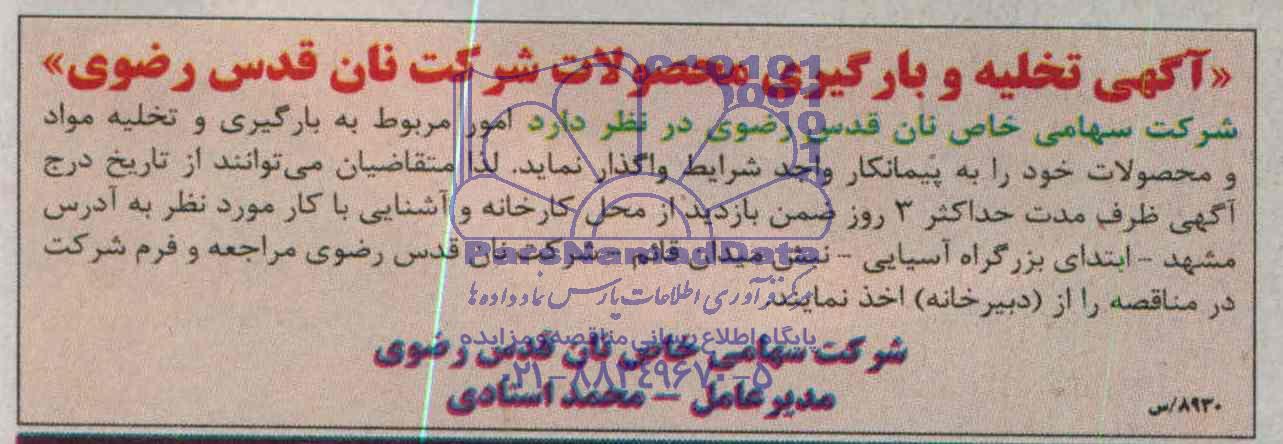 «آگهی تخلیه و بارگیری محصولات شرکت نان قدس رضوی»
شرکت سهامی خاص نان قدس رضوی در نظر دارد امور مربوط به بارگیری و تخلیه مواد
و محصولات خود را به پیمانکار واجد شرایط واگذار نماید. لذا متقاضیان می‌توانند از تاریخ درج
آگهی ظرف مدت حداکثر ۳ روز ضمن بازدید از محل کارخانه و آشنایی با کار مورد نظر به آدرس
مشهد - ابتدای بزرگراه آسیایی - نبش میدان قائم - شرکت نان قدس رضوی مراجعه و فرم شرکت
در مناقصه را از (دبیرخانه) اخذ نمایند.
شرکت سهامی خاص نان قدس رضوی
مدیرعامل - محمد استادی
۸۹۳۰/س
ParsNamadData
مرکز فرآوری اطلاعات پارس نماد داده ها
پایگاه اطلاع رسانی مناقصه و مزایده
۰۲۱-۸۸۳۴۹۶۷۰-۵